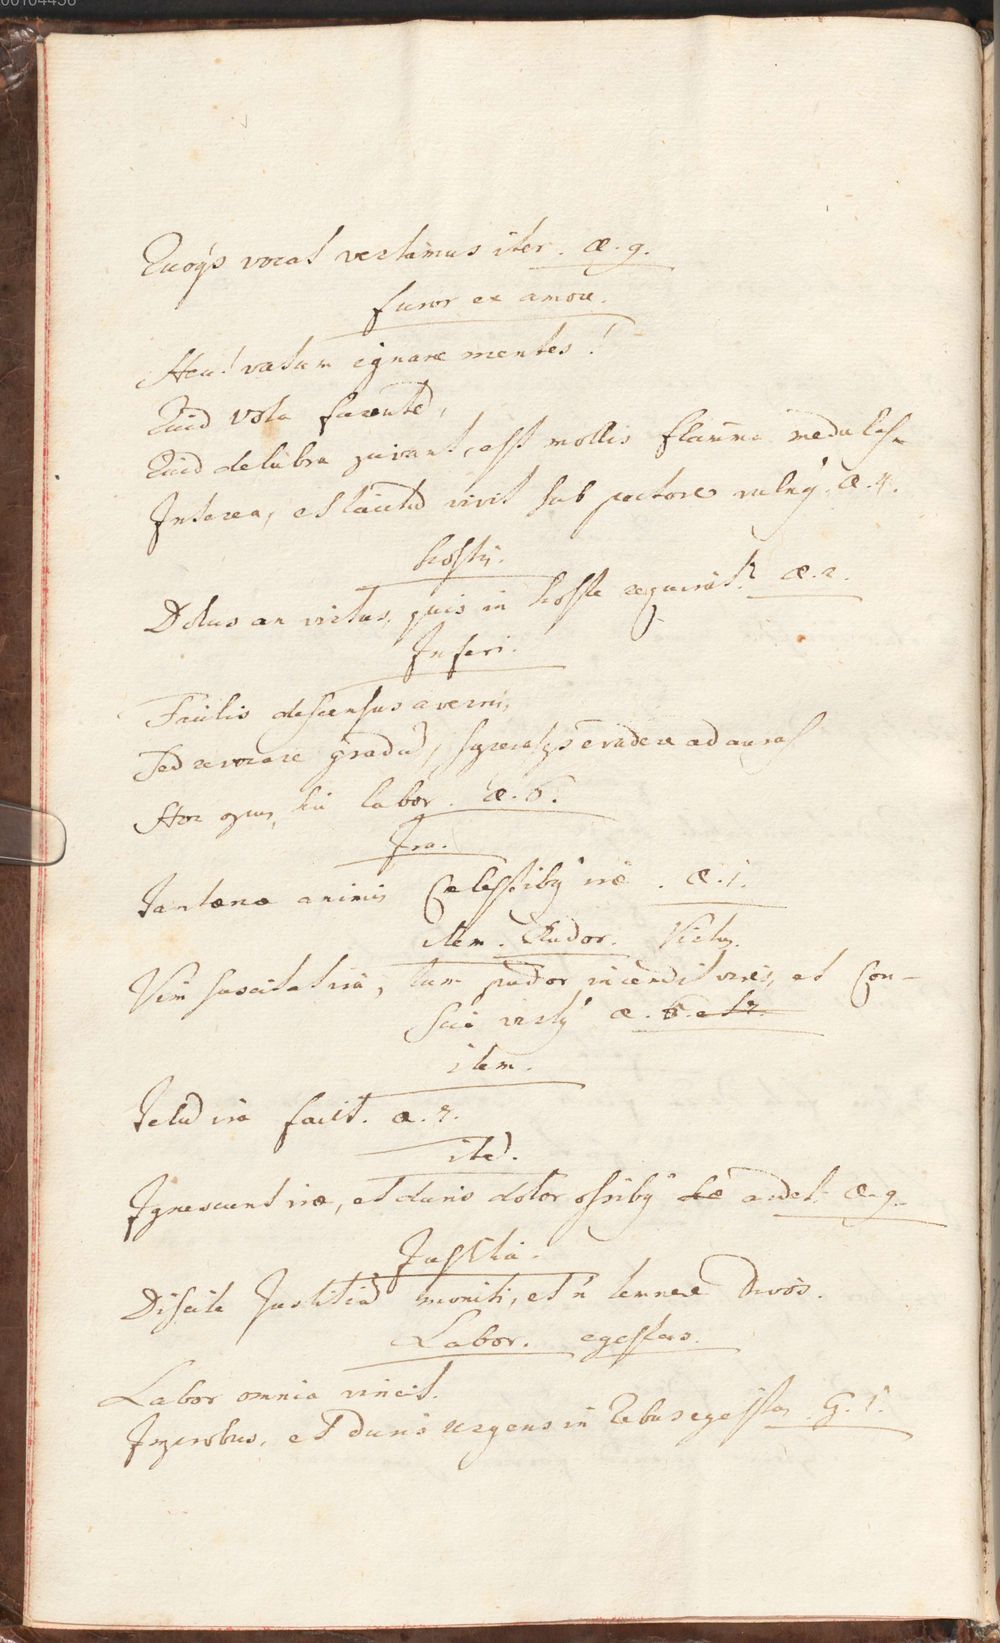 00104436
Quoqs vocat vertamus iter. æ. 9.
furor ex amore.
Heu! vatum ignaræ mentes!
Quid vota furentē,
Quid delubra juvant, est mollis flam̄a medullas
Interea, et tacitū vivit sub pectore vulnq. æ. 4.
hostis.
Dolus an virtus, quis in hoste requirat? æ. 2.
Inferi.
Facilis descensus averni,
Sed revocare gradū, superasqs evadere ad auras
Hoc opus, hic labor. æ. 6.
Ira.
Tantæne animis Cælestibq iræ. æ. 1.
item. Pudor. Virtus.
Vim suscitat ira, tum pudor incendit vires, et Con-
scia virtq æ. 5.
item.
Telū ira facit. æ. 7.
itē.
Ignescunt iræ, et duris dolor ossibq ardet. æ. 9.
Justitia.
Discite Justitiā moniti, et ñ temnere Divos.
Labor. egestas.
Labor omnia vincit.
Improbus, et duris urgens in rebus egestas. G. 1.